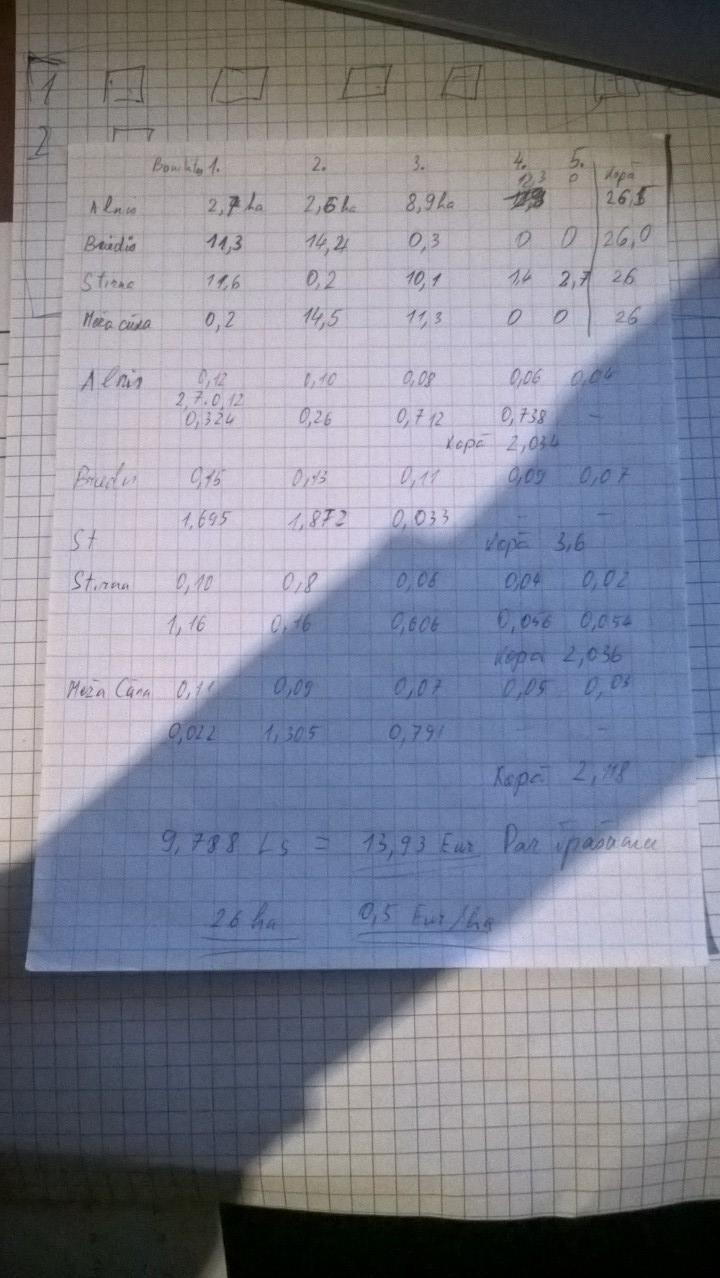 1
2
Bonitāte 1. 2. 3. 4. 5.
12,3 0 Kopā
Alnis 2,7 ha 2,6 ha 8,9 ha 26,5
Briedis 11,3 14,4 0,3 0 0 26,0
Stirna 11,6 0,2 10,1 1,4 2,7 26
Meža cūka 0,2 14,5 11,3 0 0 26
Alnis 0,12 0,10 0,08 0,06 0,04
2,7.0,12
0,324 0,26 0,712 0,738 -
Kopā 2,034
Briedis 0,15 0,13 0,11 0,09 0,07
1,695 1,872 0,033 - -
St Kopā 3,6
Stirna 0,10 0,8 0,06 0,04 0,02
1,16 0,16 0,606 0,056 0,054
Kopā 2,036
Meža Cūka 0,11 0,09 0,07 0,05 0,03
0,022 1,305 0,791 - -
Kopā 2,118
9,788 Ls = 13,93 Eur Par īpašumu
26 ha 0,5 Eur/ha